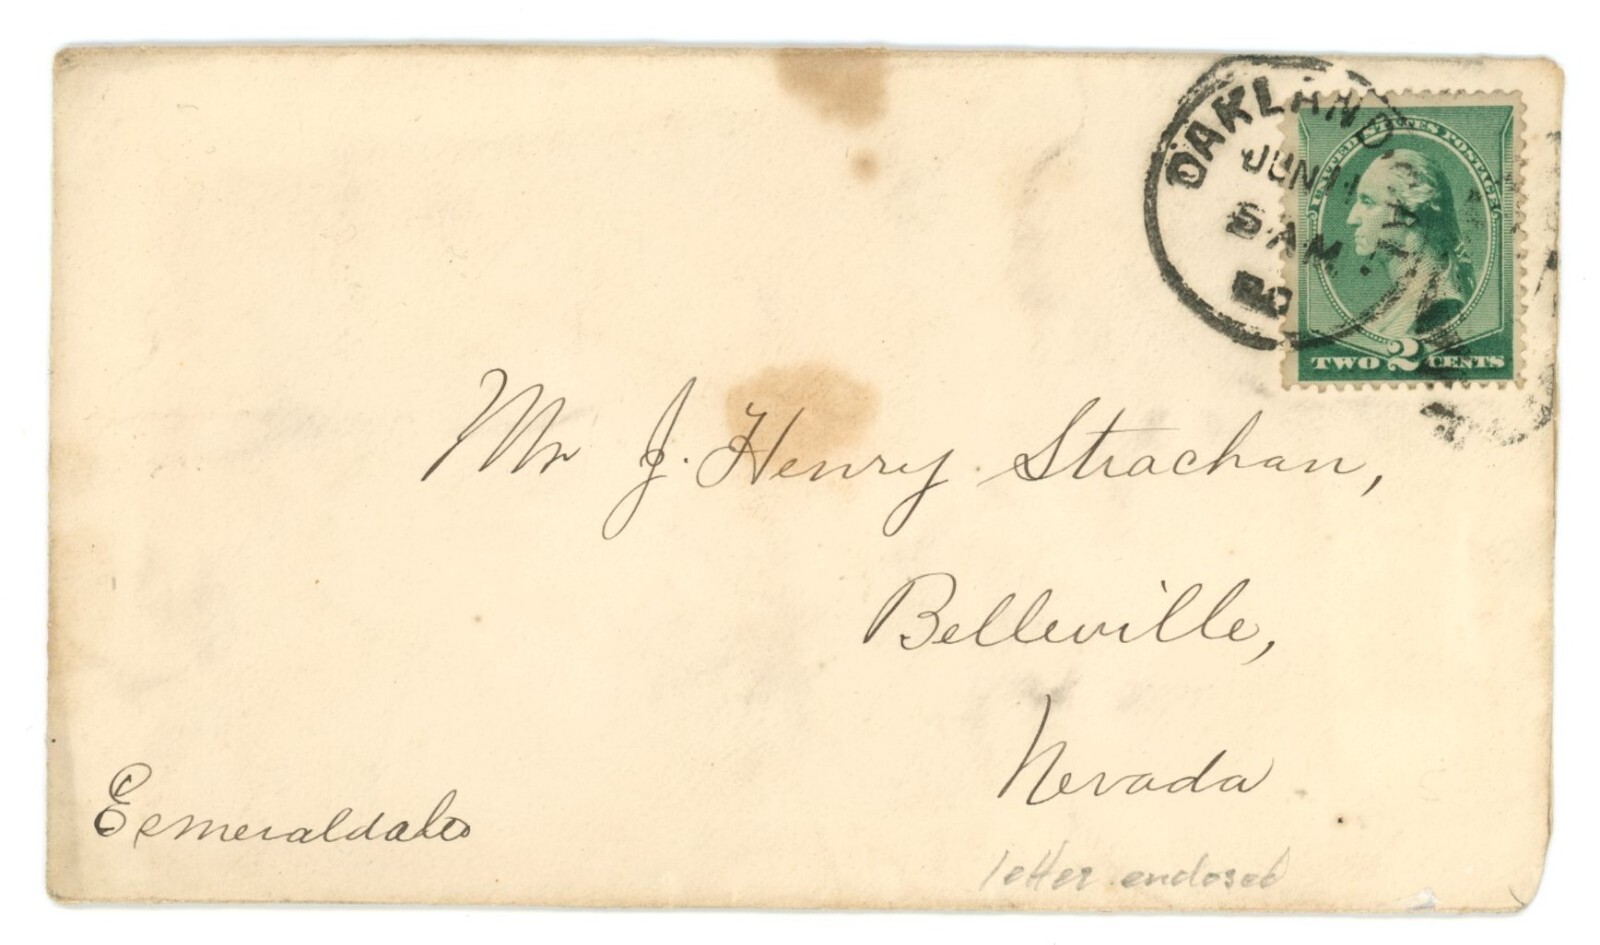 OAKLAND, CAL.
JUN
5 AM
UNITED STATES POSTAGE
TWO 2 CENTS
Mr J. Henry Strachan,
Belleville,
Nevada
Esmeralda Co
letter enclosed